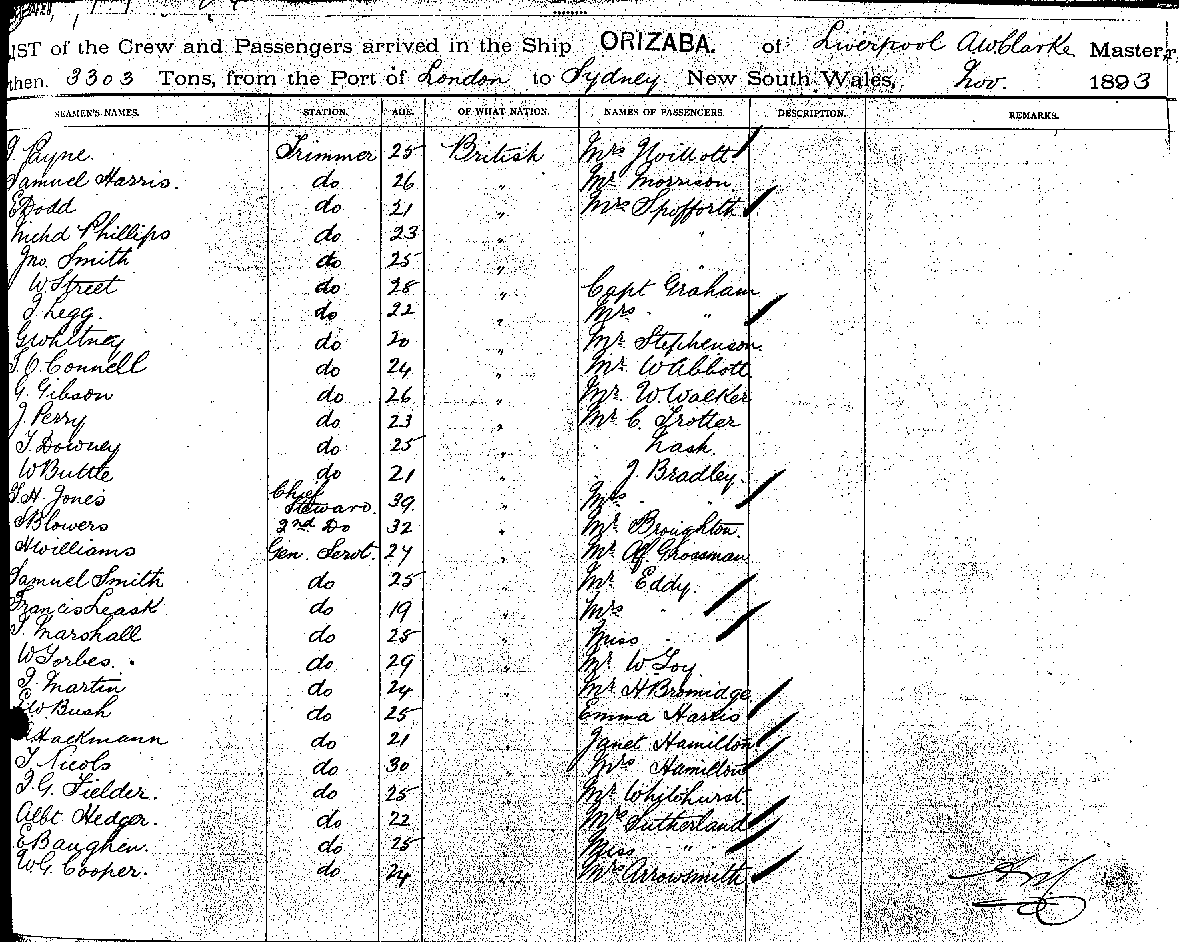 IST of the Crew and Passengers arrived in the Ship ORIZABA. of Liverpool AW Clarke Master,
then. 3303 Tons, from the Port of London to Sydney New South Wales, Nov. 1893
SEAMEN'S NAMES. STATION. AGE. OF WHAT NATION. NAMES OF PASSENGERS. DESCRIPTION. REMARKS.
Payne. Trimmer 25 British Mrs
Samuel Harris. do 26 " Mr Morrison
E Dodd do 21 " Mrs Spofforth
Phillips do 23 " "
Jno. Smith do 25 " "
W Street do 28 " Capt Graham
Legg. do 22 " Mrs "
G Whitney do 20 " Mr Stephenson.
O'Connell do 24 " Mr W Abbott
G. Gibson do 26 " Mr W. Walker
J Perry do 23 " Mr C. Trotter
T. Downey do 25 " Nash.
W Buttle do 21 " J. Bradley.
H Jones Chief Steward. 39 " Mrs "
Blowers 2nd Do 32 " Mr Broughton.
H Williams Gen. Servt. 27 " Mr Grossman
Samuel Smith do 25 " Mr Eddy.
Francis Leask do 19 " Mrs "
Marshall do 25 " Miss "
W Forbes. do 29 " Mr W Foy
Martin do 24 " Mr H Bromidge
W Bush do 25 " Emma Harris
Hackmann do 21 " Janet Hamilton
T Nicols do 30 " Mrs Hamilton
G. Fielder. do 25 " Mr Whitehurst.
Albt Hedger. do 22 " Mrs Sutherland
E Baughen. do 25 " Miss "
W.G. Cooper. do 24 " Mrs Arrowsmith